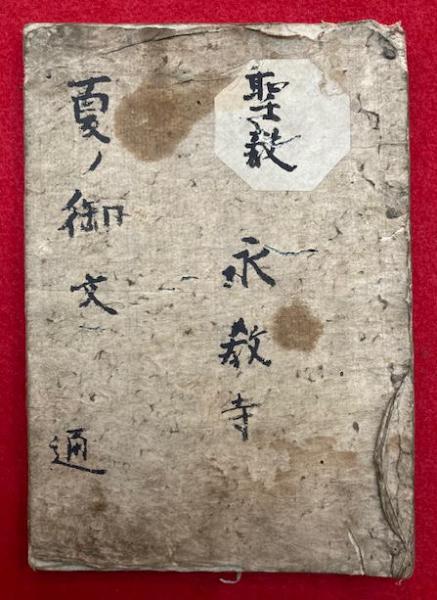 聖教
永教寺
夏ノ御文
通